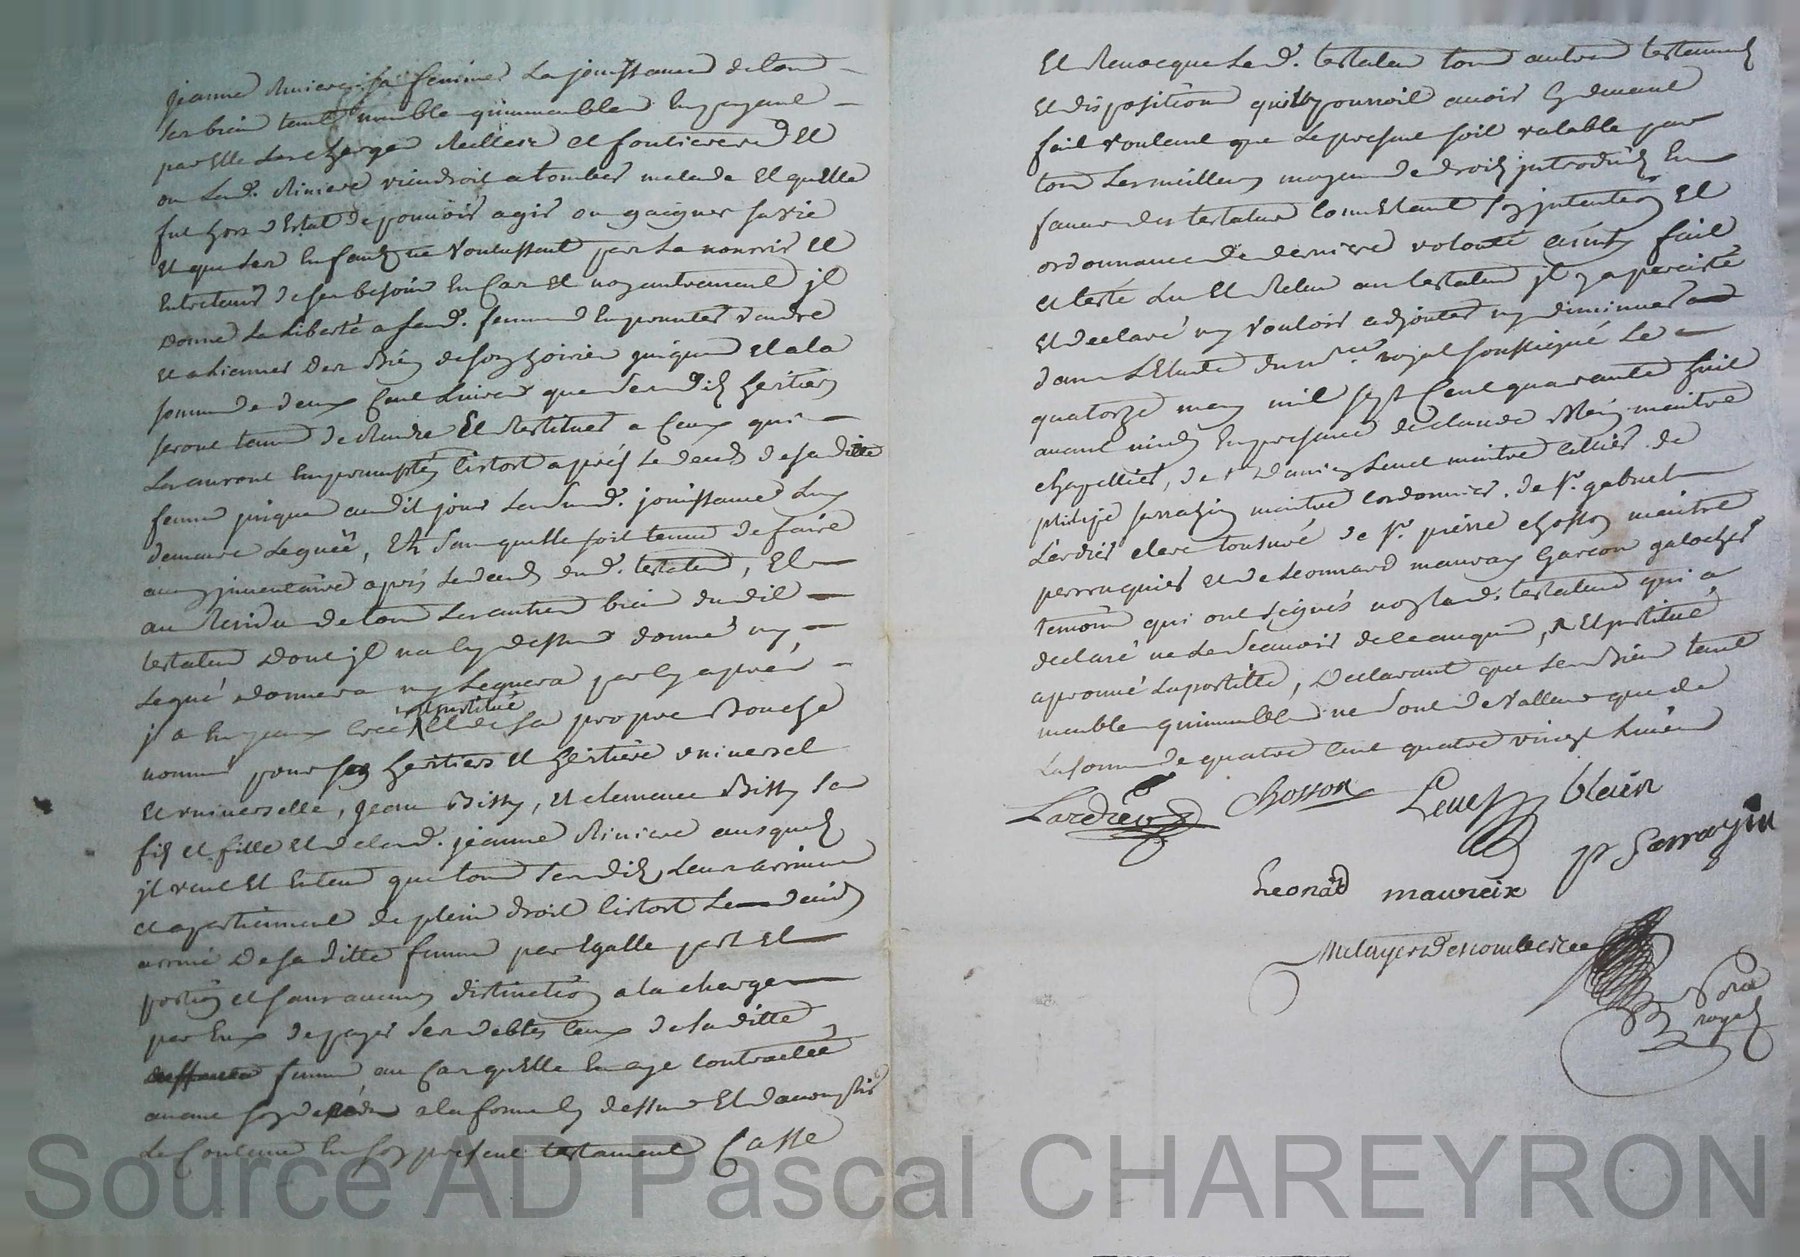 jeanne Riviere sa femme la jouissance de tous
ses bien tant meuble qu'immeubles en payant
par elle les charges Reelles et foncieres Et
ou lad. Riviere viendroit a tomber malade Et quelle
fut hors d'Estat de pouvoir agir ou gaigner sa vie
Et que ses Enfants ne voulussent pas la nourrir Et
Entretenir de ses besoin En Cas Et non autrement jl
donne la liberté a sad. femme d'Emprunter vandre
et alienner des Bien de son hoirie jusques Et a la
somme de deux Cent Livres que sesdits heritiers
seront tenus de Rendre Et Restituer a Ceux qui
Les auront Emprumptés sistost aprés le deceds de sa ditte
femme jusques audit jour lad. jouissance luy
demeure Leguée, Et sans quelle soit tenue de faire
aucun jnventaire aprés le deceds dud. testateur, Et
au Residu de tous les autres bien dudit
testateur dont jl n'a cy dessus donné ny
Legué donnera ny Leguera par cy aprés
jl a En yceux creé et de sa propre Bouche
institué
nommé pour ses heritiers Et heritiere universel
Et universelle, Jean Bisty, Et clemence Bisty ses
fils et fille Et de lad. jeanne Riviere ausquels
jl veut Et Entend que tous sesdits biens arrivent
et apartiennent de plein droit sistost le deceds
arrivé de sa ditte femme par Egalle part Et
portion et sans aucune distinction a la charge
par Eux de payer ses debtes Ceux de sa ditte
femme au Cas quelle En aye contractée
avant son deceds a la forme cy dessus Et d'accomplir
Le Contenu En son present testament Casse
Et Revocque led. testateur tous autres testaments
Et dispositions quil pourroit avoir cy devant
fait voulant que le present soit valable par
tous les meilleurs moyens de droits introduits En
faveur des testateurs Comme Etant son jntention Et
ordonnance de derniere volonté ainsy fait
et testé lu Et Relu au testateur jl y a percisté
Et declaré ny vouloir adjouter ny diminuer
dans L'Etude du nre. royal soussigné le
quatorze may mil sept Cent quarante huit
avant midy En presence de claude Blein maitre
chapellier, de sr. Damien Levet maitre sellier de
philipe sarrazin maitre Cordonnier, de sr. gabriel
Lardier clerc tonsuré de sr. pierre chosson maitre
perruquier Et de Leonnard mauraix Garcon galocher
temoins qui ont signés non led. testateur qui a
declaré ne le scavoir de ce enquis, Et jnstitué
aprouvé La postille, Declarant que ses Bien tant
meuble qu'immeuble ne sont de valleur que de
la somme de quatre Cent quatre vingt Livres
Lardier Chosson Levet blein
p Sarrazin
Leonard maureix
Metayer Descombes nre
Nore
royal
Source AD Pascal CHAREYRON